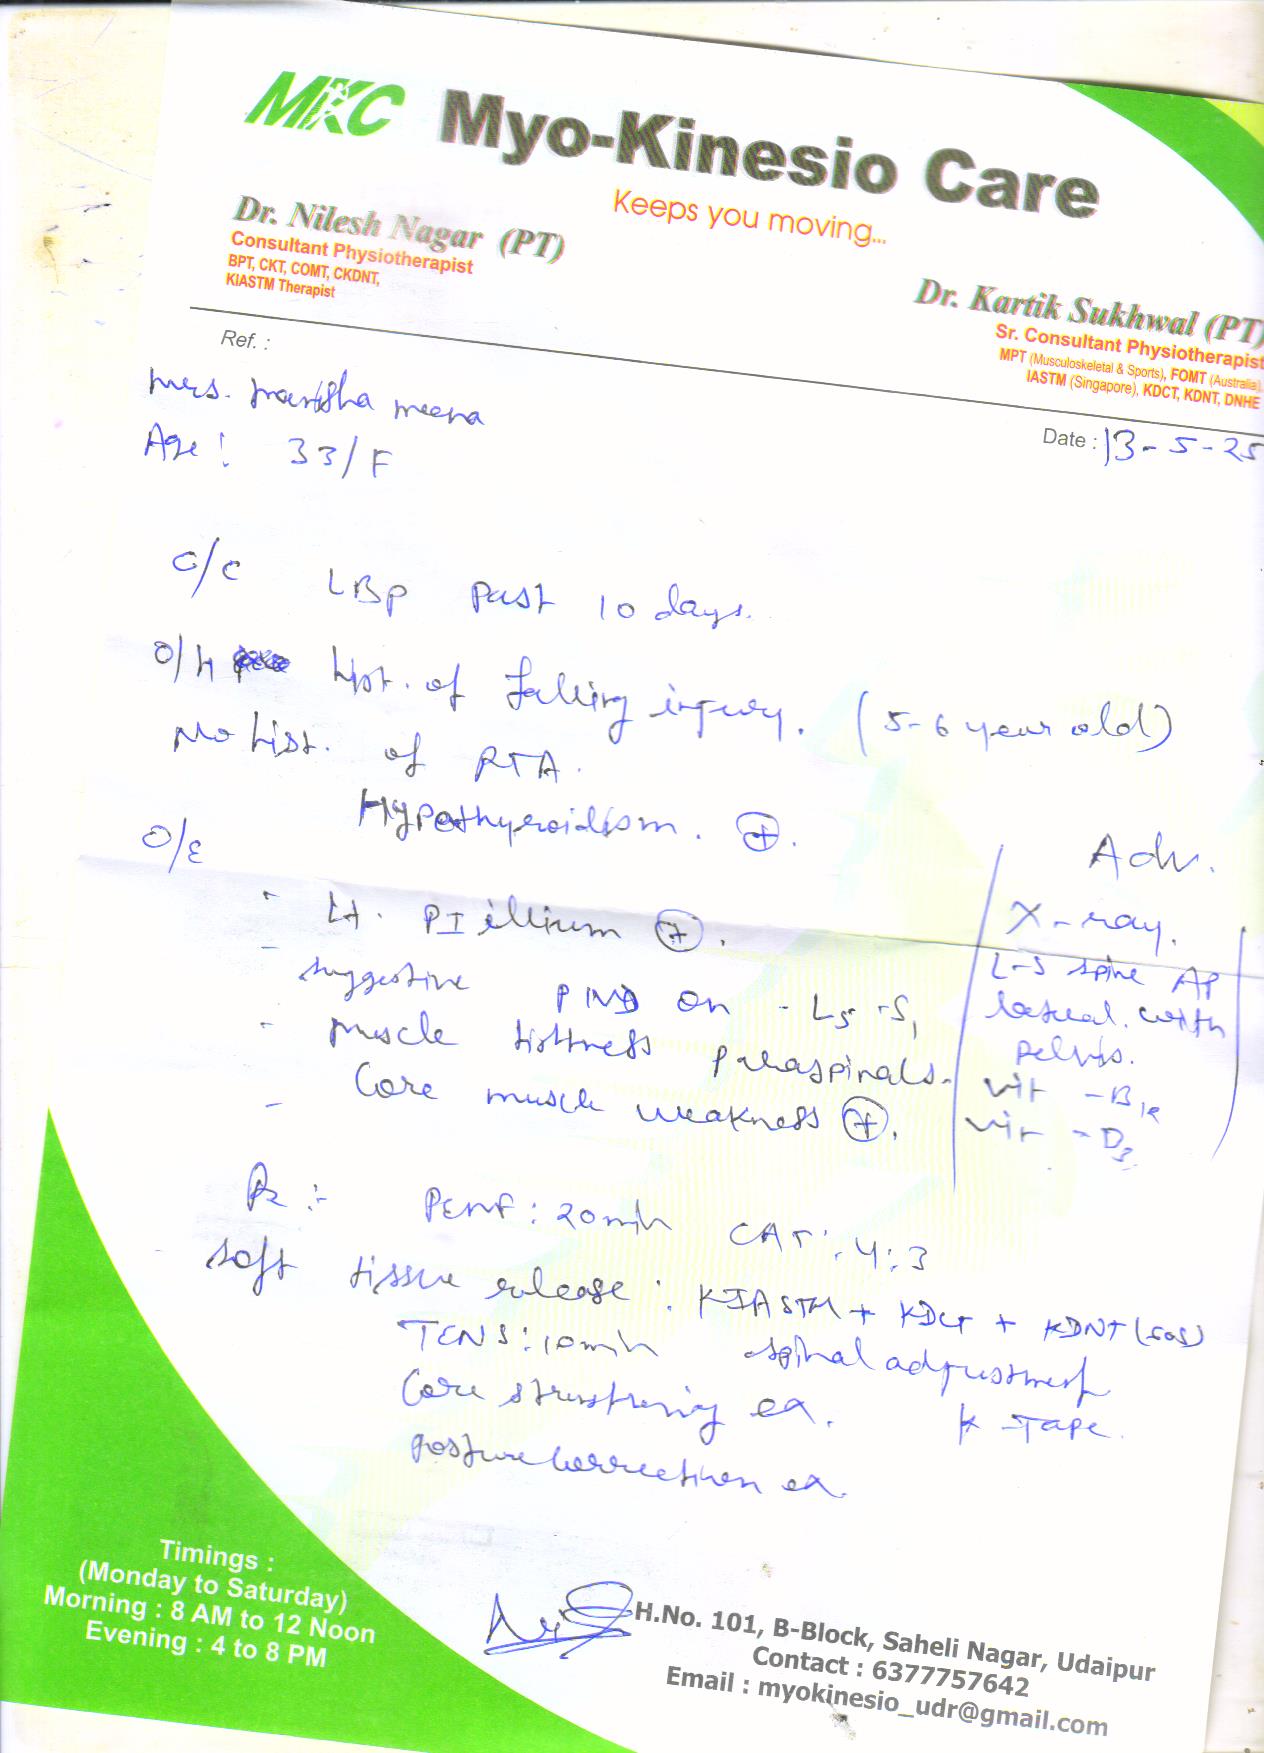 MKC Myo-Kinesio Care
Keeps you moving...
Dr. Nilesh Nagar (PT)
Consultant Physiotherapist
BPT, CKT, COMT, CKDNT,
KIASTM Therapist
Dr. Kartik Sukhwal (PT)
Sr. Consultant Physiotherapist
MPT (Musculoskeletal & Sports), FOMT (Australia),
IASTM (Singapore), KDCT, KDNT, DNHE
Ref. :
Date : 13-5-25
Mrs. Manisha meena
Age: 33/F
C/C LBP past 10 days.
O/H Hist. of falling injury. (5-6 year old)
No Hist. of RTA.
Hypothyroidism. (+).
O/E
- Lt. PI illium (+).
- suggestive PIVD on - L5-S1
- muscle tittness paraspinals.
- Core muscle weakness (+).
Adv.
X-ray.
L-S spine AP
lateral. with
pelvis.
vit - B12
vit - D3
Rx :- PEMF: 20 min CAT: 4:3
soft tissue release: KIASTM + KDCT + KDNT
TENS: 10 min spinal adjustment
Core strengthening ex. K-Tape.
posture correction ex.
Timings :
(Monday to Saturday)
Morning : 8 AM to 12 Noon
Evening : 4 to 8 PM
H.No. 101, B-Block, Saheli Nagar, Udaipur
Contact : 6377757642
Email : myokinesio_udr@gmail.com